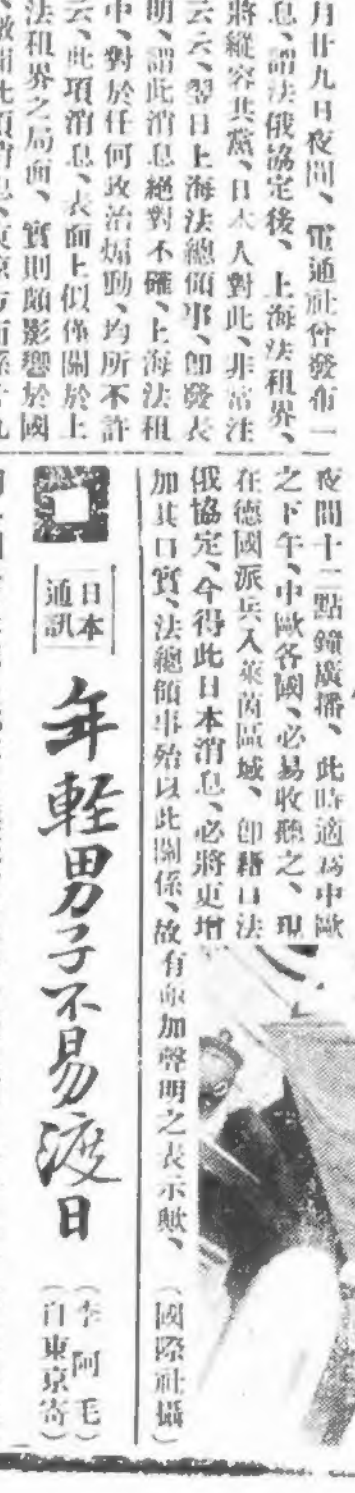 月廿九日夜間、電通社曾發布一
息、謂法俄協定後、上海法租界、
將縱容共黨、日本人對此、非常注
云云、翌日上海法總領事、卽發表
明、謂此消息絕對不確、上海法租
中、對於任何政治煽動、均所不許
云、此項消息、表面上似僅關於上
法租界之局面、實則頗影響於國
夜間十二點鐘廣播、此時適爲中歐
之下午、中歐各國、必易收聽之、現
在德國派兵入萊茵區域、卽藉口法
俄協定、今得此日本消息、必將更增
加其口實、法總領事殆以此關係、故有亟加聲明之表示歟、（國際社攝）
日本
通訊
年輕男子不易渡日
（李阿毛）
（自東京寄）